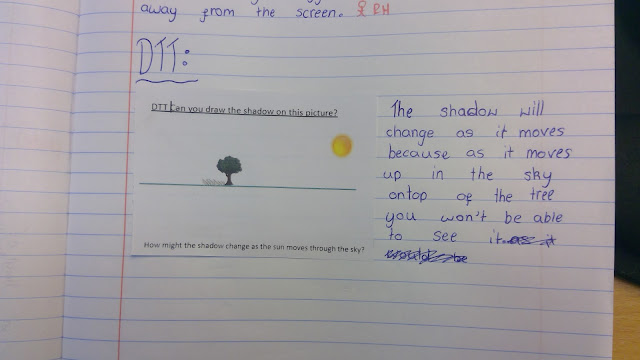 away from the screen. RH
DTT:
DTT Can you draw the shadow on this picture?
How might the shadow change as the sun moves through the sky?
The shadow will
change as it moves
because as it moves
up in the sky
ontop of the tree
you won't be able
to see it as it